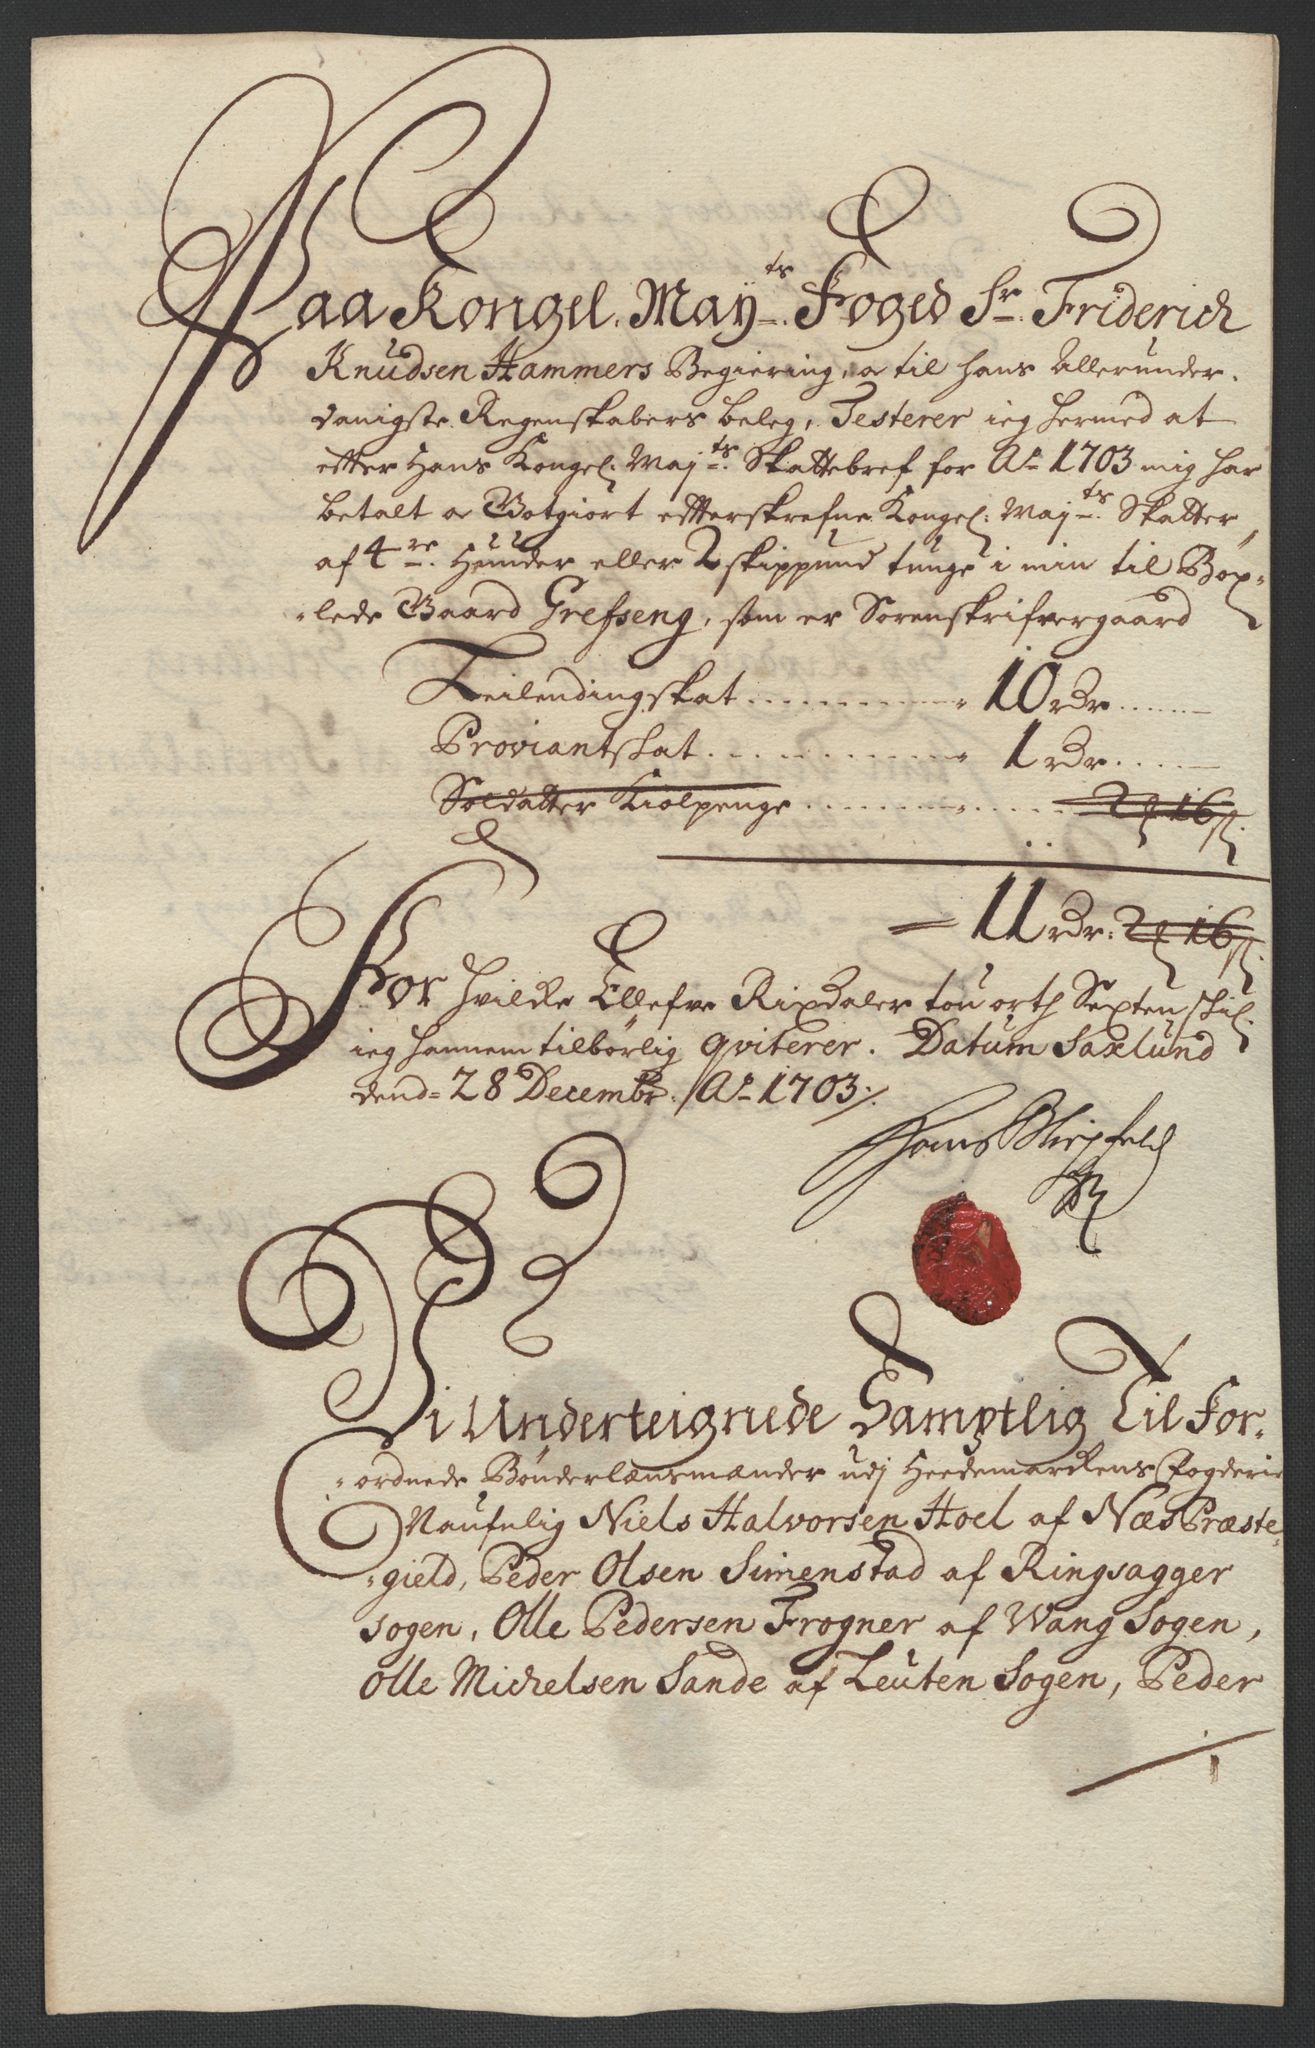 Paa Kongel. May:ts Foged Sr. Friderich
Knudsen Hammers Begiering, a til hans Allerunder-
danigste Regenskabers beleg, Testerer ieg hermed at
effter Hans Kongel: Maj:ts Skattebref for Ao 1703 mig har
betalt a Botgiort effterskrefne Kongel: Maj:ts Skatter
af 4re Hünder eller 2 skippund tunge i min til Böx-
-lede Gaard Grefseng, som er Sorenskrifvergaard
Leilendingskat . . . . . . . . . 10 rdr . . . . .
Proviantskat . . . . . . . . . 1 rdr . . . . .
Soldatter Kiolpenge . . . . . . . . . 2 ort 16 s.
11 rdr: 2 ort 16 s.
For hvilcke Ellefve Rixdaler tou orth Sexten skil:
ieg hannem tilbörlig qviterer. Datum Saxlund
dend= 28 Decembr. Ao 1703 /:
Hans
Vi Underteignede Samptlig Til For-
-ordnede Bönderlænsmænder udj Heedemarckens Fogderie
Naufnlig Niels Halvorsen Hoel af Næs Præste-
-gield, Peder Olsen Simenstad af Ringsagger
sogen, Olle Pedersen Frogner af Wang Sogen,
Olle Michelsen Sande af Leuten Sogen, Peder